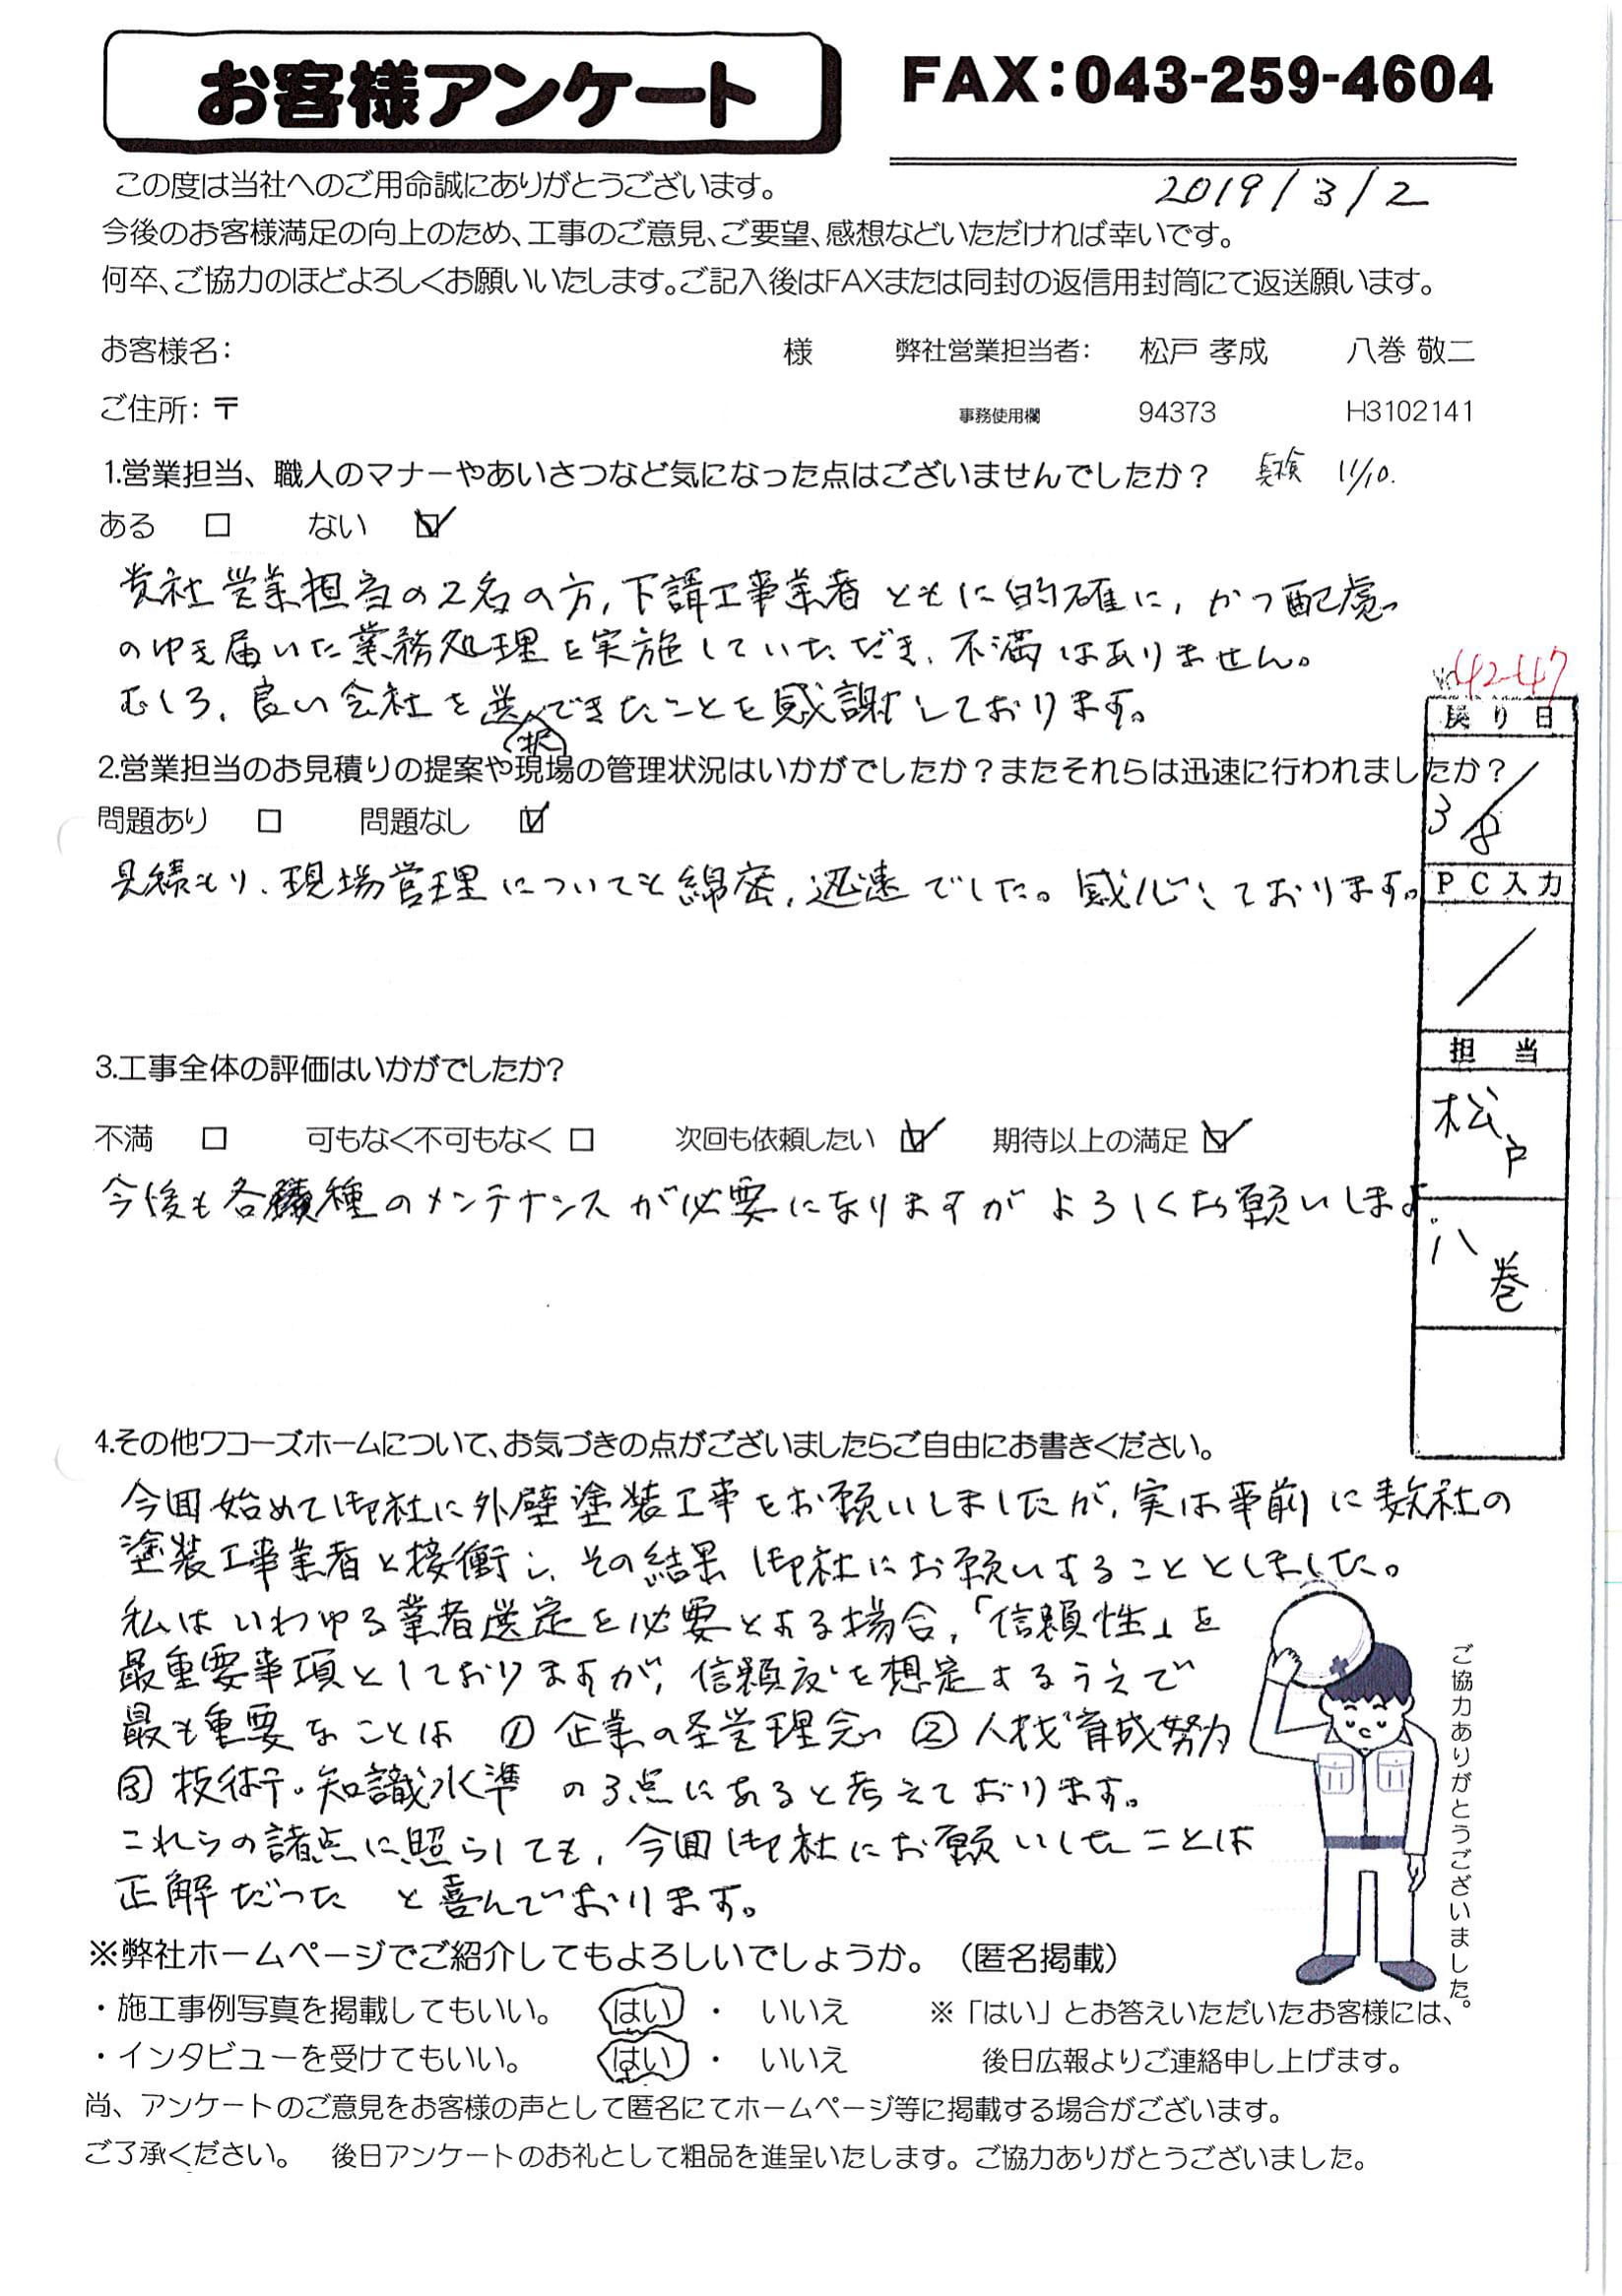 お客様アンケート
FAX:043-259-4604
2019/3/2
この度は当社へのご用命誠にありがとうございます。
今後のお客様満足の向上のため、工事のご意見、ご要望、感想などいただければ幸いです。
何卒、ご協力のほどよろしくお願いいたします。ご記入後はFAXまたは同封の返信用封筒にて返送願います。
お客様名: 様 弊社営業担当者: 松戸 孝成 八巻 敬二
ご住所:〒 事務使用欄 94373 H3102141
1.営業担当、職人のマナーやあいさつなど気になった点はございませんでしたか? 11/10.
ある □ ない ☑
貴社営業担当の2名の方,下請工事業者 ともに的確に,かつ配慮
のゆき届いた業務処理を実施していただき、不満はありません。
むしろ、良い会社を選択できたことを感謝しております。
2.営業担当のお見積りの提案や現場の管理状況はいかがでしたか?またそれらは迅速に行われましたか?
問題あり □ 問題なし ☑
見積もり、現場管理についても綿密,迅速でした。感心しております。
42-47
戻り日
3/8
PC入力
/
担当
松戸
八巻
3.工事全体の評価はいかがでしたか?
不満 □ 可もなく不可もなく □ 次回も依頼したい ☑ 期待以上の満足 ☑
今後も各種のメンテナンスが必要になりますがよろしくお願いします
4.その他ワコーズホームについて、お気づきの点がございましたらご自由にお書きください。
今回始めて御社に外壁塗装工事をお願いしましたが,実は事前に数社の
塗装工事業者と接衝し、その結果御社にお願いすることとしました。
私はいわゆる業者選定を必要とする場合,「信頼性」を
最重要事項としておりますが,信頼度を想定するうえで
最も重要なことは ① 企業の経営理念 ② 人材育成努力
③ 技術・知識水準 の3点にあると考えております。
これらの諸点に照らしても,今回御社にお願いしたことは
正解だった と喜んでおります。
ご協力ありがとうございました。
※弊社ホームページでご紹介してもよろしいでしょうか。(匿名掲載)
・施工事例写真を掲載してもいい。 はい ・ いいえ ※「はい」とお答えいただいたお客様には、
・インタビューを受けてもいい。 はい ・ いいえ 後日広報よりご連絡申し上げます。
尚、アンケートのご意見をお客様の声として匿名にてホームページ等に掲載する場合がございます。
ご了承ください。 後日アンケートのお礼として粗品を進呈いたします。ご協力ありがとうございました。